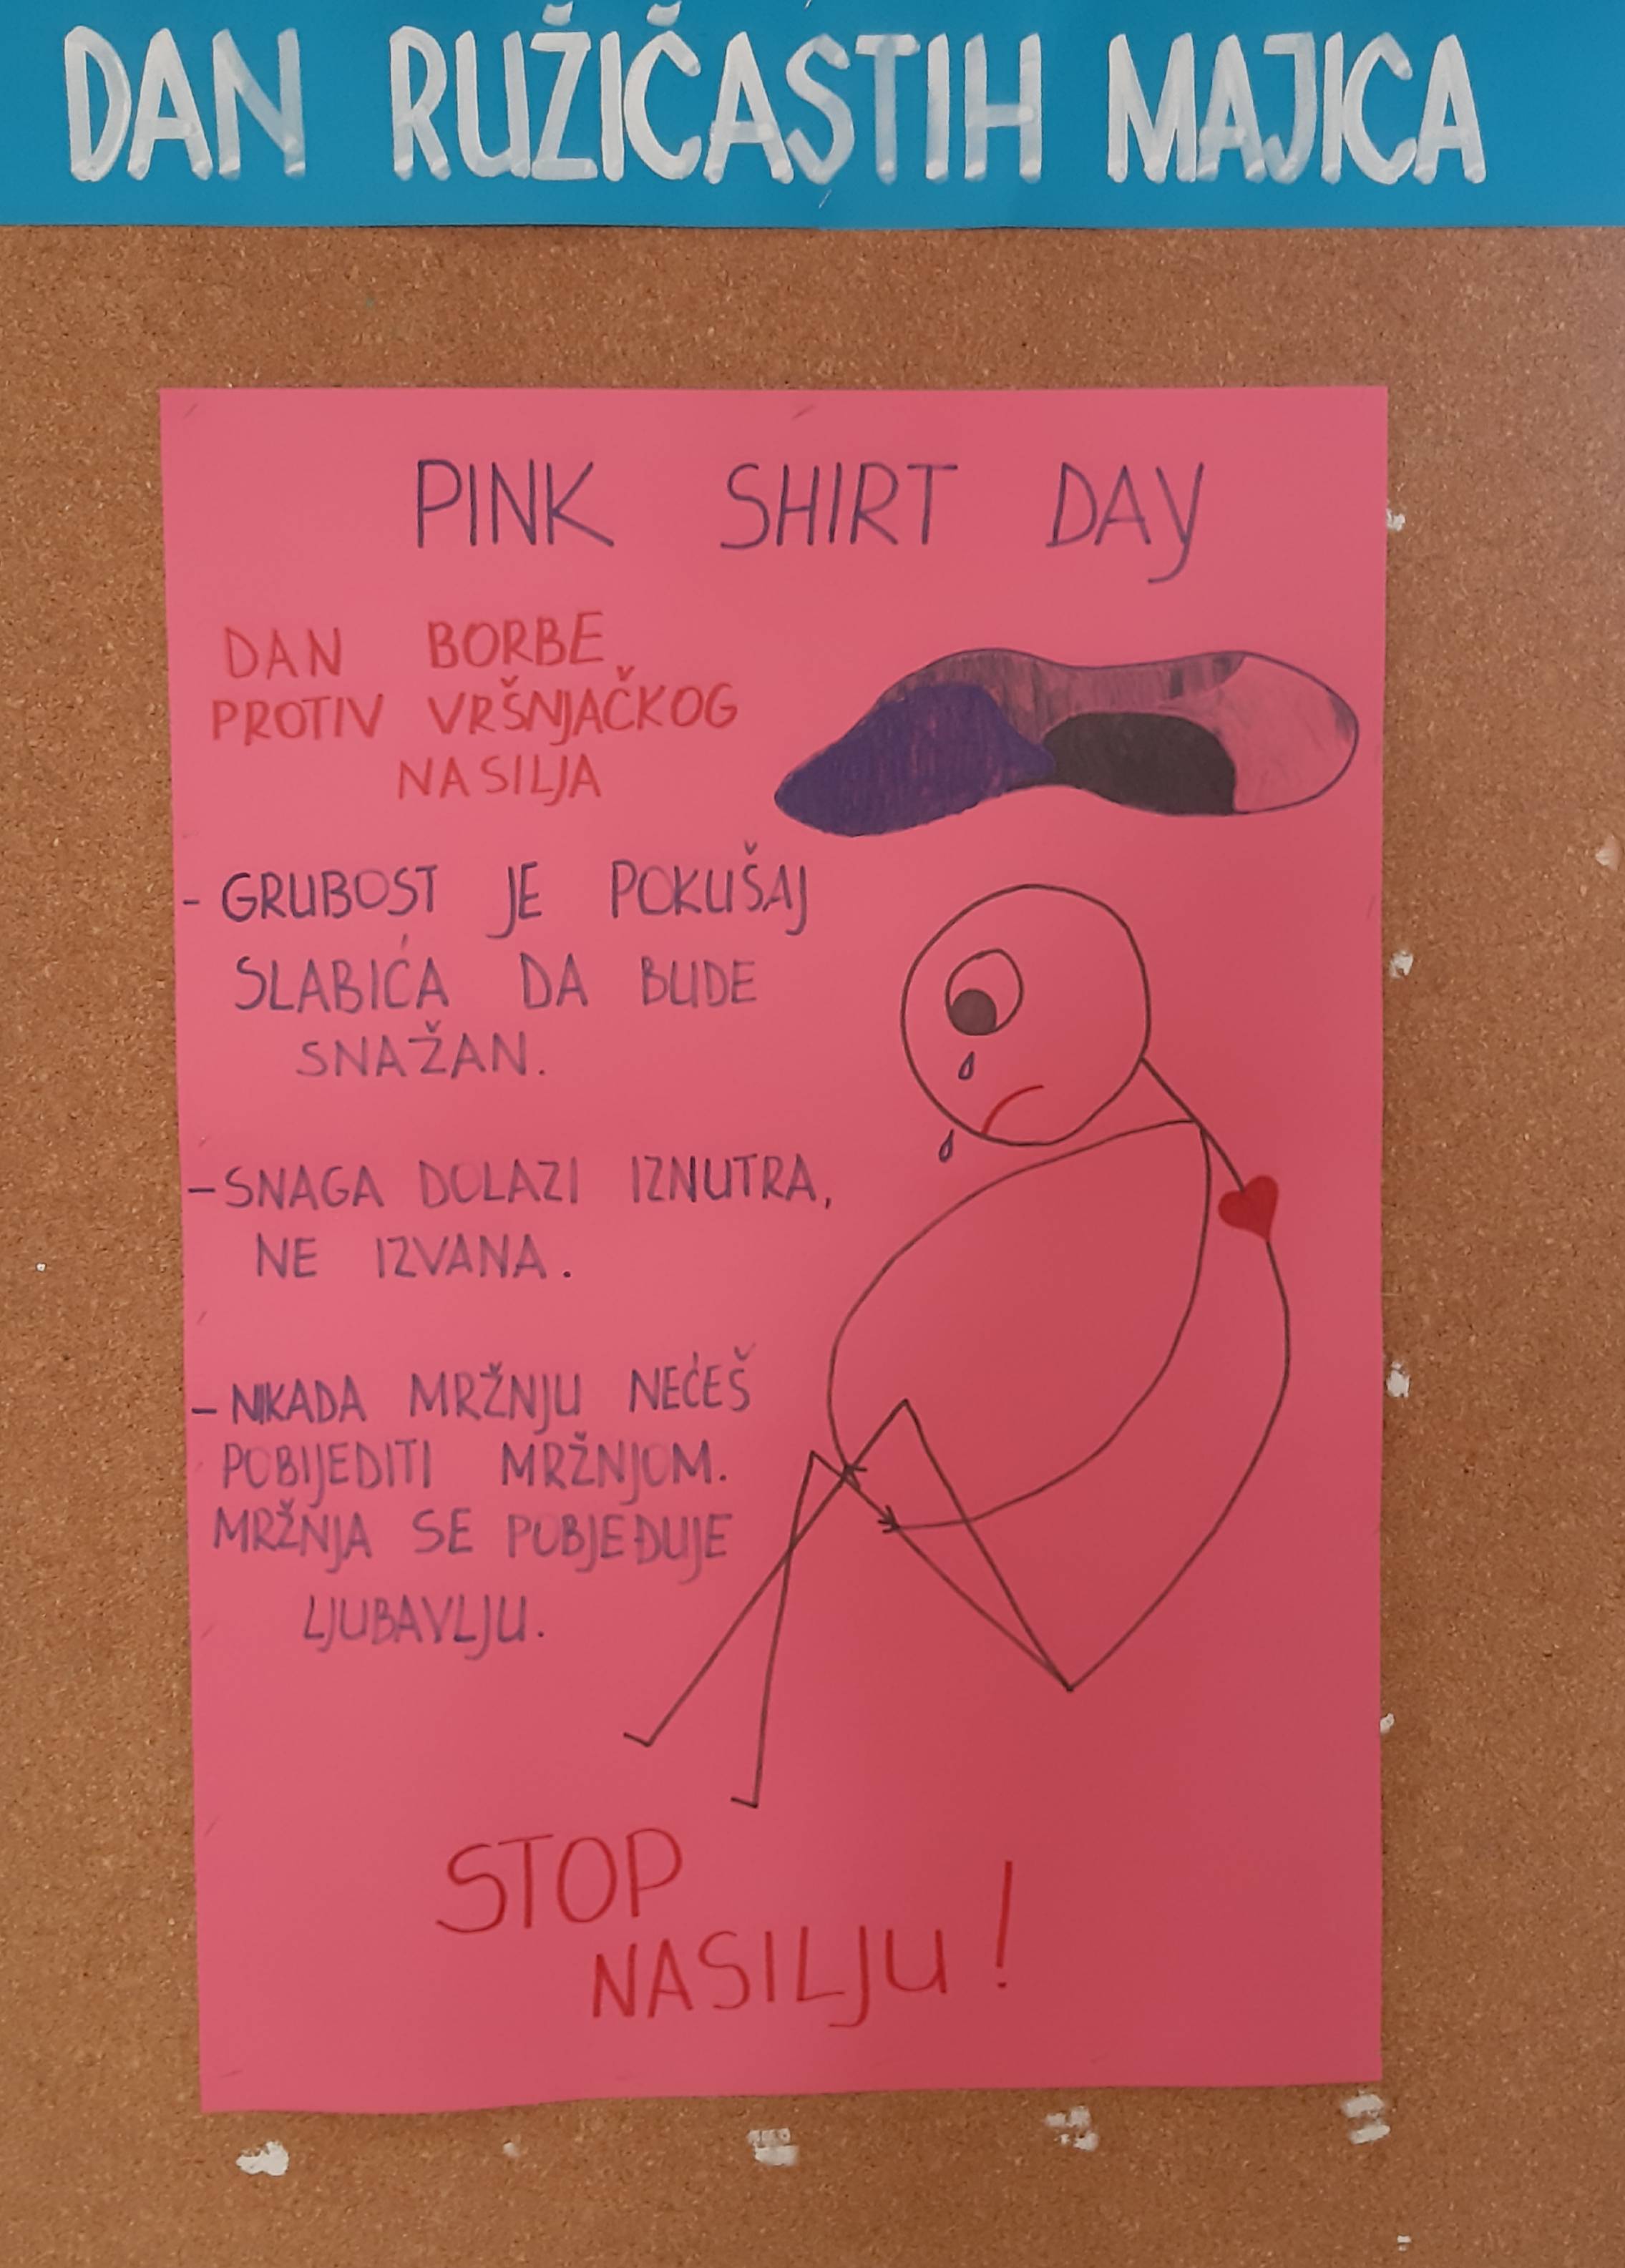 DAN RUŽIČASTIH MAJICA
PINK SHIRT DAY
DAN BORBE
PROTIV VRŠNJAČKOG
NASILJA
- GRUBOST JE POKUŠAJ
SLABIĆA DA BUDE
SNAŽAN.
- SNAGA DOLAZI IZNUTRA,
NE IZVANA.
- NIKADA MRŽNJU NEĆEŠ
POBIJEDITI MRŽNJOM.
MRŽNJA SE POBJEĐUJE
LJUBAVLJU.
STOP
NASILJU!